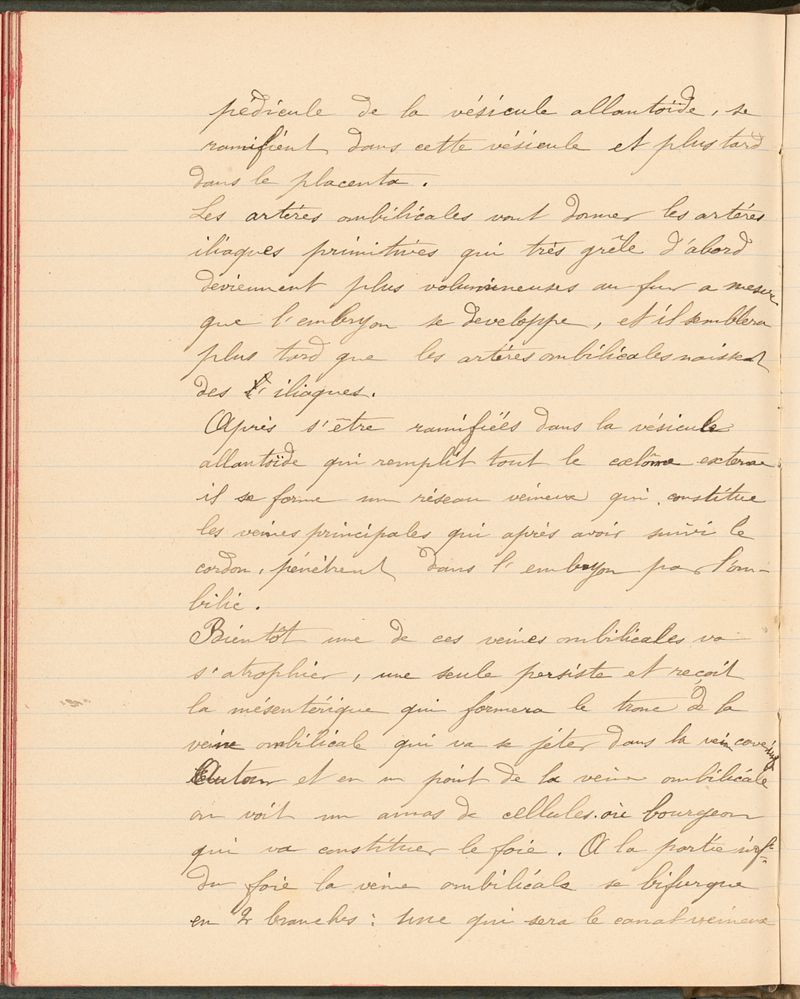 pédicule de la vésicule allantoïde, se
ramifient dans cette vésicule et plus tard
dans le placenta.
Les artères ombilicales vont donner les artères
iliaques primitives qui très grêle d'abord
deviennent plus volumineuses au fur a mesure
que l'embryon se developpe, et il semblera
plus tard que les artères ombilicales naissent
des iliaques.
Après s'être ramifiées dans la vésicule
allantoïde qui remplit tout le cœlôme externe
il se forme un réseau veineux qui constitue
les veines principales qui après avoir suivi le
cordon, pénètrent dans l'embryon par l'om-
bilic.
Bientôt une de ces veines ombilicales va
s'atrophier, une seule persiste et reçoit
la mésentérique qui formera le tronc de la
veine ombilicale qui va se jéter dans la vein cave inf
Autour et en un point de la veine ombilicale
on voit un amas de cellules ou bourgeon
qui va constituer le foie. A la partie inf.
du foie la veine ombilicale se bifurque
en 2 branches: une qui sera le canal veineux